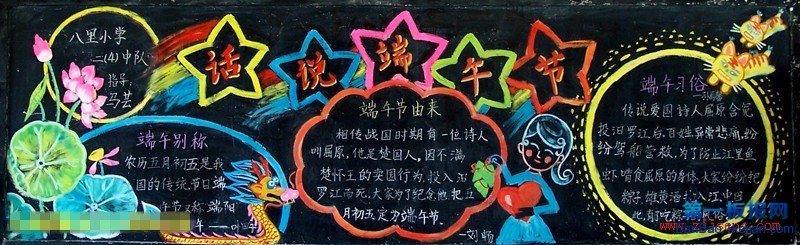 八里小学
二(4)中队
指导:
马芸
话说端午节
端午别称
农历五月初五是我
国的传统节日端
午节又称端阳
端午节由来
相传战国时期有一位诗人
叫屈原,他是楚国人,因不满
楚怀王的卖国行为,投入汨
罗江而死,大家为了纪念他把五
月初五定为端午节。
—刘畅
端午习俗
传说爱国诗人屈原含冤
投汨罗江后,百姓异常悲痛,纷
纷驾船营救,为了防止江里鱼
虾啃食屈原的身体,大家纷纷把
粽子雄黄酒
第一板报网